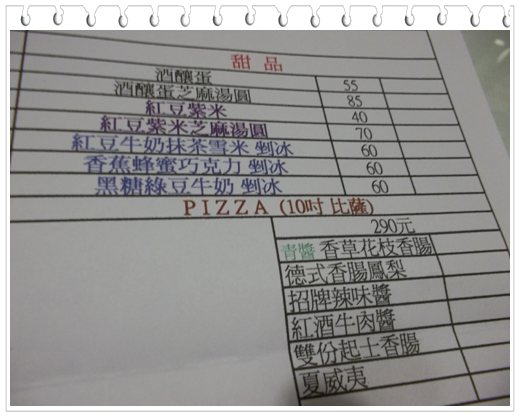 甜 品
酒釀蛋 55
酒釀蛋芝麻湯圓 85
紅豆紫米 40
紅豆紫米芝麻湯圓 70
紅豆牛奶抹茶雪米 剉冰 60
香蕉蜂蜜巧克力 剉冰 60
黑糖綠豆牛奶 剉冰 60
PIZZA (10吋 比薩)
290元
青醬 香草花枝香腸
德式香腸鳳梨
招牌辣味醬
紅酒牛肉醬
雙份起士香腸
夏威夷